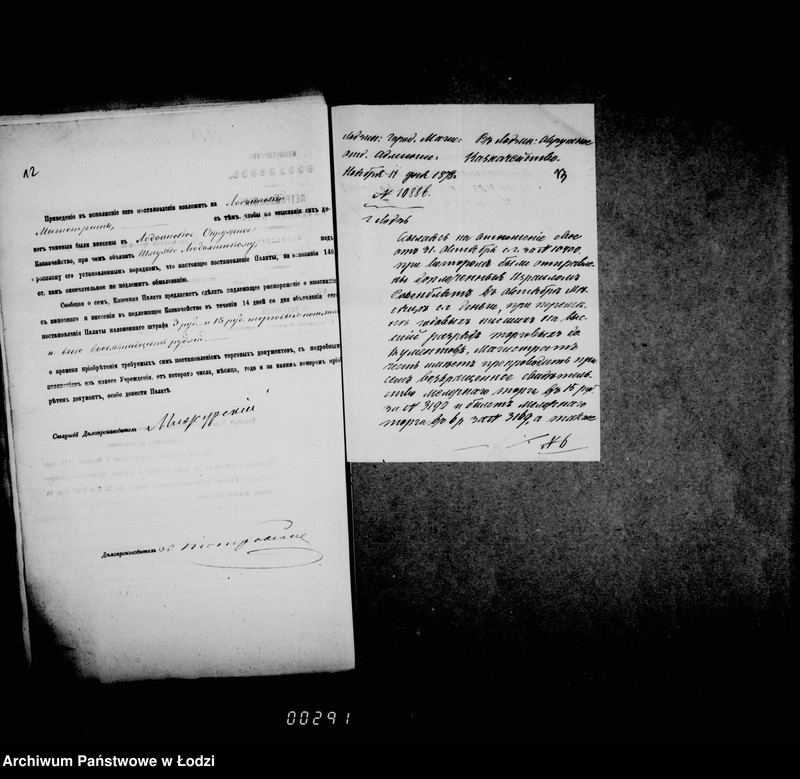 12
Приведеніе въ исполненіе сего постановленія возложить на Лодзинскій
Магистратъ, съ тѣмъ, чтобы по взысканіи сихъ де-
негъ таковыя были внесены въ Лодзинское Окружное
Казначейство, при чемъ объявить подъ
росписку его установленнымъ порядкомъ, что настоящее постановленіе Палаты, на основаніи 140
ст. есть окончательное не подлежитъ обжалованію.
Сообщая о семъ, Казенная Палата предлагаетъ сдѣлать надлежащее распоряженіе о взысканіи
съ виновнаго и внесеніи въ надлежащее Казначейство въ теченіи 14 дней со дня объявленія сего
постановленія Палаты наложеннаго штрафа 3 руб. и 15 руб. торговыхъ пошлинъ
а всего восемнадцать рублей
о времени пріобрѣтенія требуемыхъ симъ постановленіемъ торговыхъ документовъ, съ подробнымъ
изъ какого Учрежденія, отъ котораго числа, мѣсяца, года и за какимъ номеромъ пріоб-
рѣтенъ документъ, особо донести Палатѣ.
Старшій Дѣлопроизводитель
Дѣлопроизводитель
Лодзин: Город. Маги: Въ Лодзин: Окружное
отд. Админи: Казначейство.
Ноября 11 дня 1878. 13
№ 10886.
г. Лодзь
Ссылаясь на отношеніе
отъ 31 Октября с.г. за №
при которомъ были отправле-
ны доплаченныя Израилемъ
въ Октябрѣ мѣ-
сяцѣ с.г. деньги, при
на
разрядъ торговыхъ до-
кументовъ, Магистратъ
честь имѣетъ препроводить при
семъ возвращенное свидѣтель-
ство мелочнаго торга въ 15 руб.
за № 3192 и билетъ мелочнаго
торга въ 6 р. за № 3169, а также
№ 6
00291
Archiwum Państwowe w Łodzi